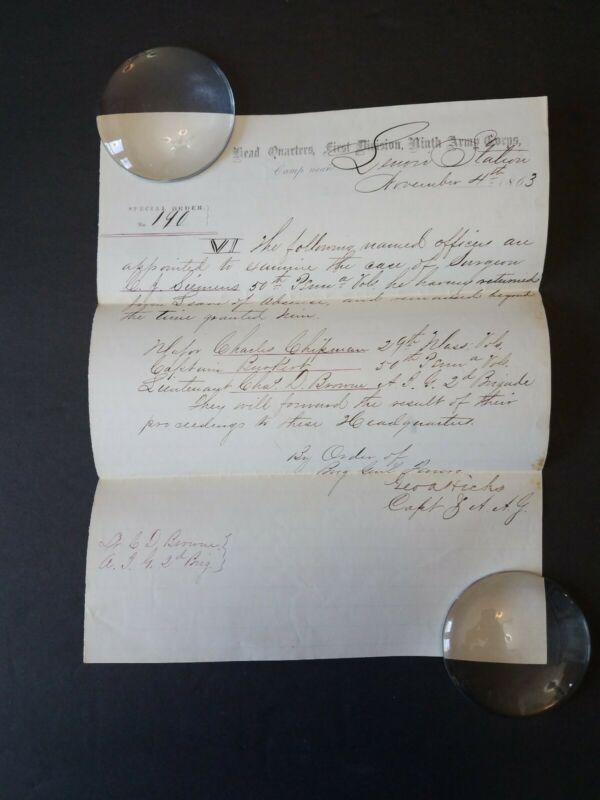 Head Quarters, First Division, Ninth Army Corps,
Camp near Lenoir Station
November 4th 1863
SPECIAL ORDER,
No. 190
VI The following named officers are
appointed to examine the case of Surgeon
50th Penna Vols he having returned
from Leave of Absence, and remained beyond
the time granted him.
Major Charles Chipman 29th Mass. Vols,
Captain 50th Penna Vols
Lieutenant Chas. D. Browne A. I. G. 2d Brigade
They will forward the result of their
proceedings to these Headquarters.
By Order of
Brig Genl
Geo A Hicks
Capt & A A G.
Lt C D Browne
A. I. G. 2d Brig